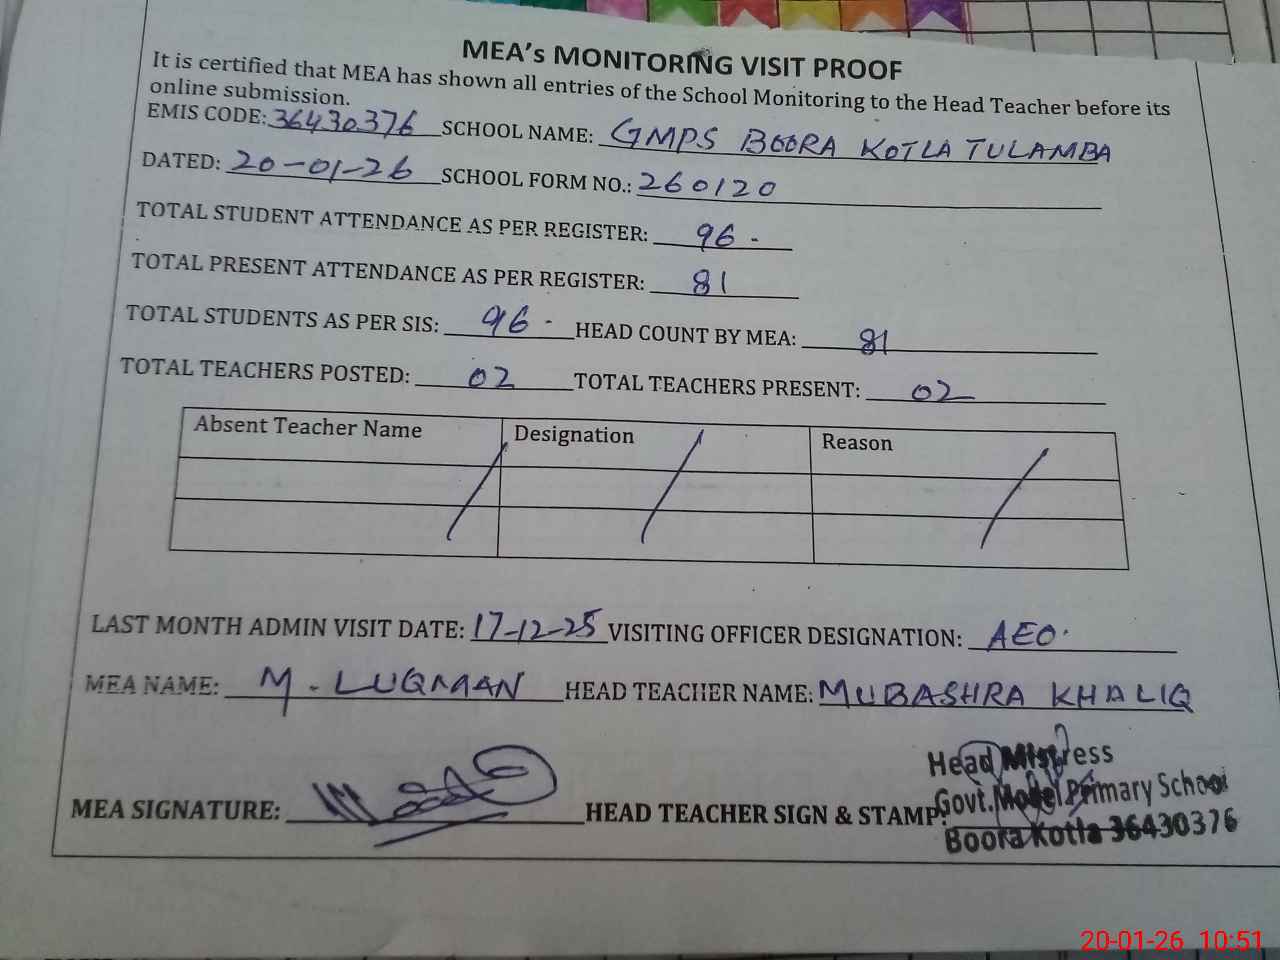 MEA's MONITORING VISIT PROOF
It is certified that MEA has shown all entries of the School Monitoring to the Head Teacher before its
online submission.
EMIS CODE: 36430376 SCHOOL NAME: GMPS BOORA KOTLA TULAMBA
DATED: 20-01-26 SCHOOL FORM NO.: 260120
TOTAL STUDENT ATTENDANCE AS PER REGISTER: 96
TOTAL PRESENT ATTENDANCE AS PER REGISTER: 81
TOTAL STUDENTS AS PER SIS: 96 HEAD COUNT BY MEA: 81
TOTAL TEACHERS POSTED: 02 TOTAL TEACHERS PRESENT: 02
Absent Teacher Name Designation Reason
LAST MONTH ADMIN VISIT DATE: 17-12-25 VISITING OFFICER DESIGNATION: AEO
MEA NAME: M. LUQMAAN HEAD TEACHER NAME: MUBASHRA KHALIQ
MEA SIGNATURE: HEAD TEACHER SIGN & STAMP:
Head Mistress
Govt. Model Primary School
Boora Kotla 36430376
20-01-26 10:51